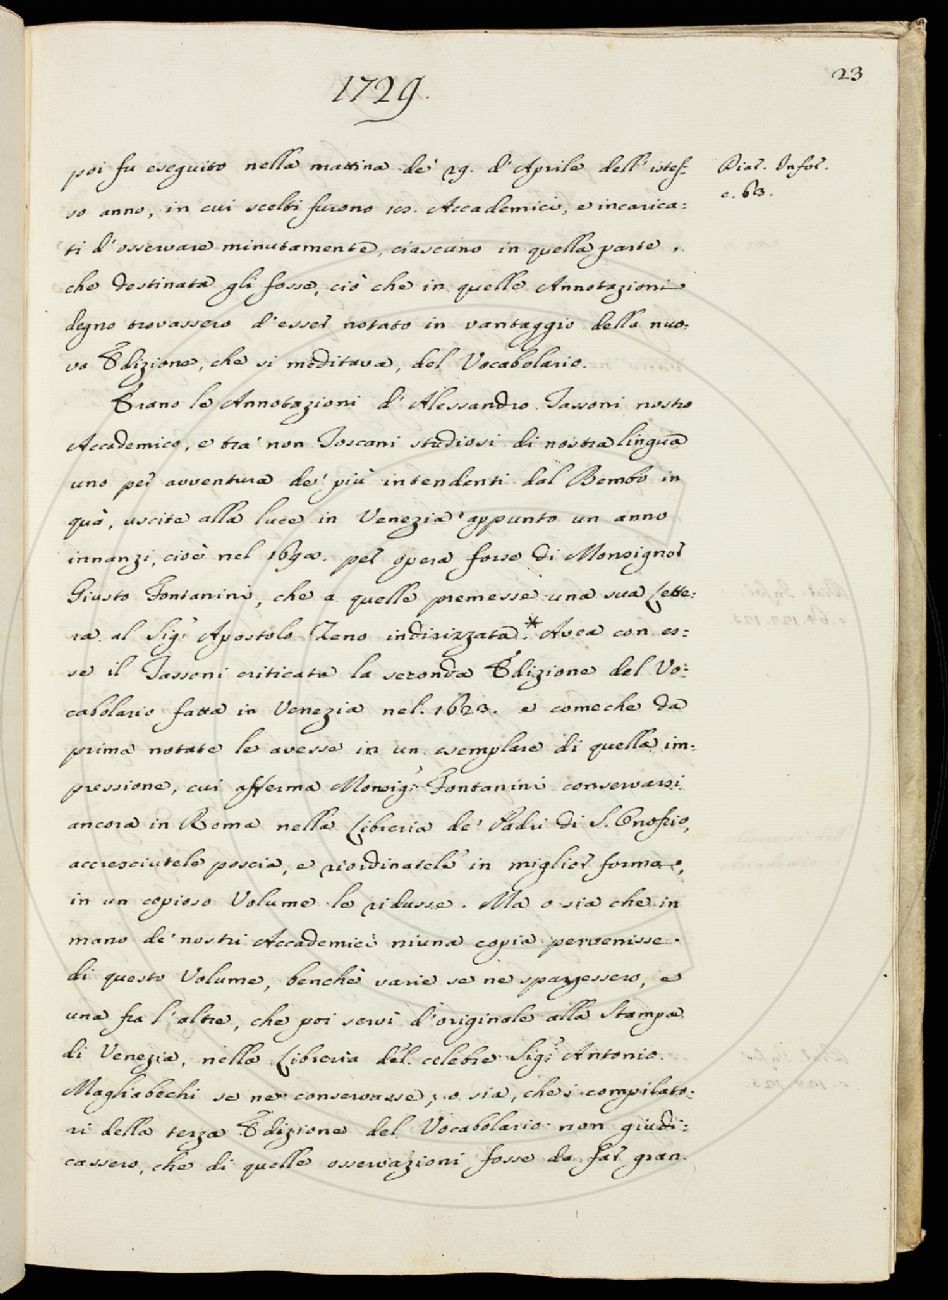 1729.
23
poi fu eseguito nella mattina de' 29. d'Aprile dell'istes-
so anno, in cui scelti furono 10. Accademici, e incarica:
ti d'osservare minutamente, ciascuno in quella parte,
che destinata gli fosse, ciò che in quelle Annotazioni
degno trovassero d'esser notato in vantaggio della nuo:
va Edizione, che si meditava, del Vocabolario.
Erano le Annotazioni d'Alessandro Tassoni nostro
Accademico, e tra' non Toscani studiosi di nostra lingua
uno per avventura de' più intendenti dal Bembo in
quà, uscite alla luce in Venezia appunto un anno
innanzi, cioè nel 1698. per opera forse di Monsignor
Giusto Fontanini, che a quelle premesse una sua Lette:
ra al Sig.r Apostolo Zeno indirizzata.* Avea con es:
se il Tassoni criticata la seconda Edizione del Vo:
cabolario fatta in Venezia nel 1623. e comeche da
prima notate le avesse in un esemplare di quella im:
pressione, cui afferma Monsig.r Fontanini conservarsi
ancora in Roma nella Libreria de' Padri di S. Onofrio,
accresciutele poscia, e riordinatele in miglior forma,
in un copioso Volume le ridusse. Ma o sia che in
mano de' nostri Accademici niuna copia pervenisse
di questo Volume, benchè varie se ne spargessero, e
una fra l'altre, che poi servì d'originale alla Stampa
di Venezia, nella Libreria del celebre Sig.r Antonio
Magliabechi se ne conservasse; o sia, che i compilato:
ri della terza Edizione del Vocabolario non giudi:
cassero, che di quelle osservazioni fosse da far gran
Diar. Infor.
c. 63.